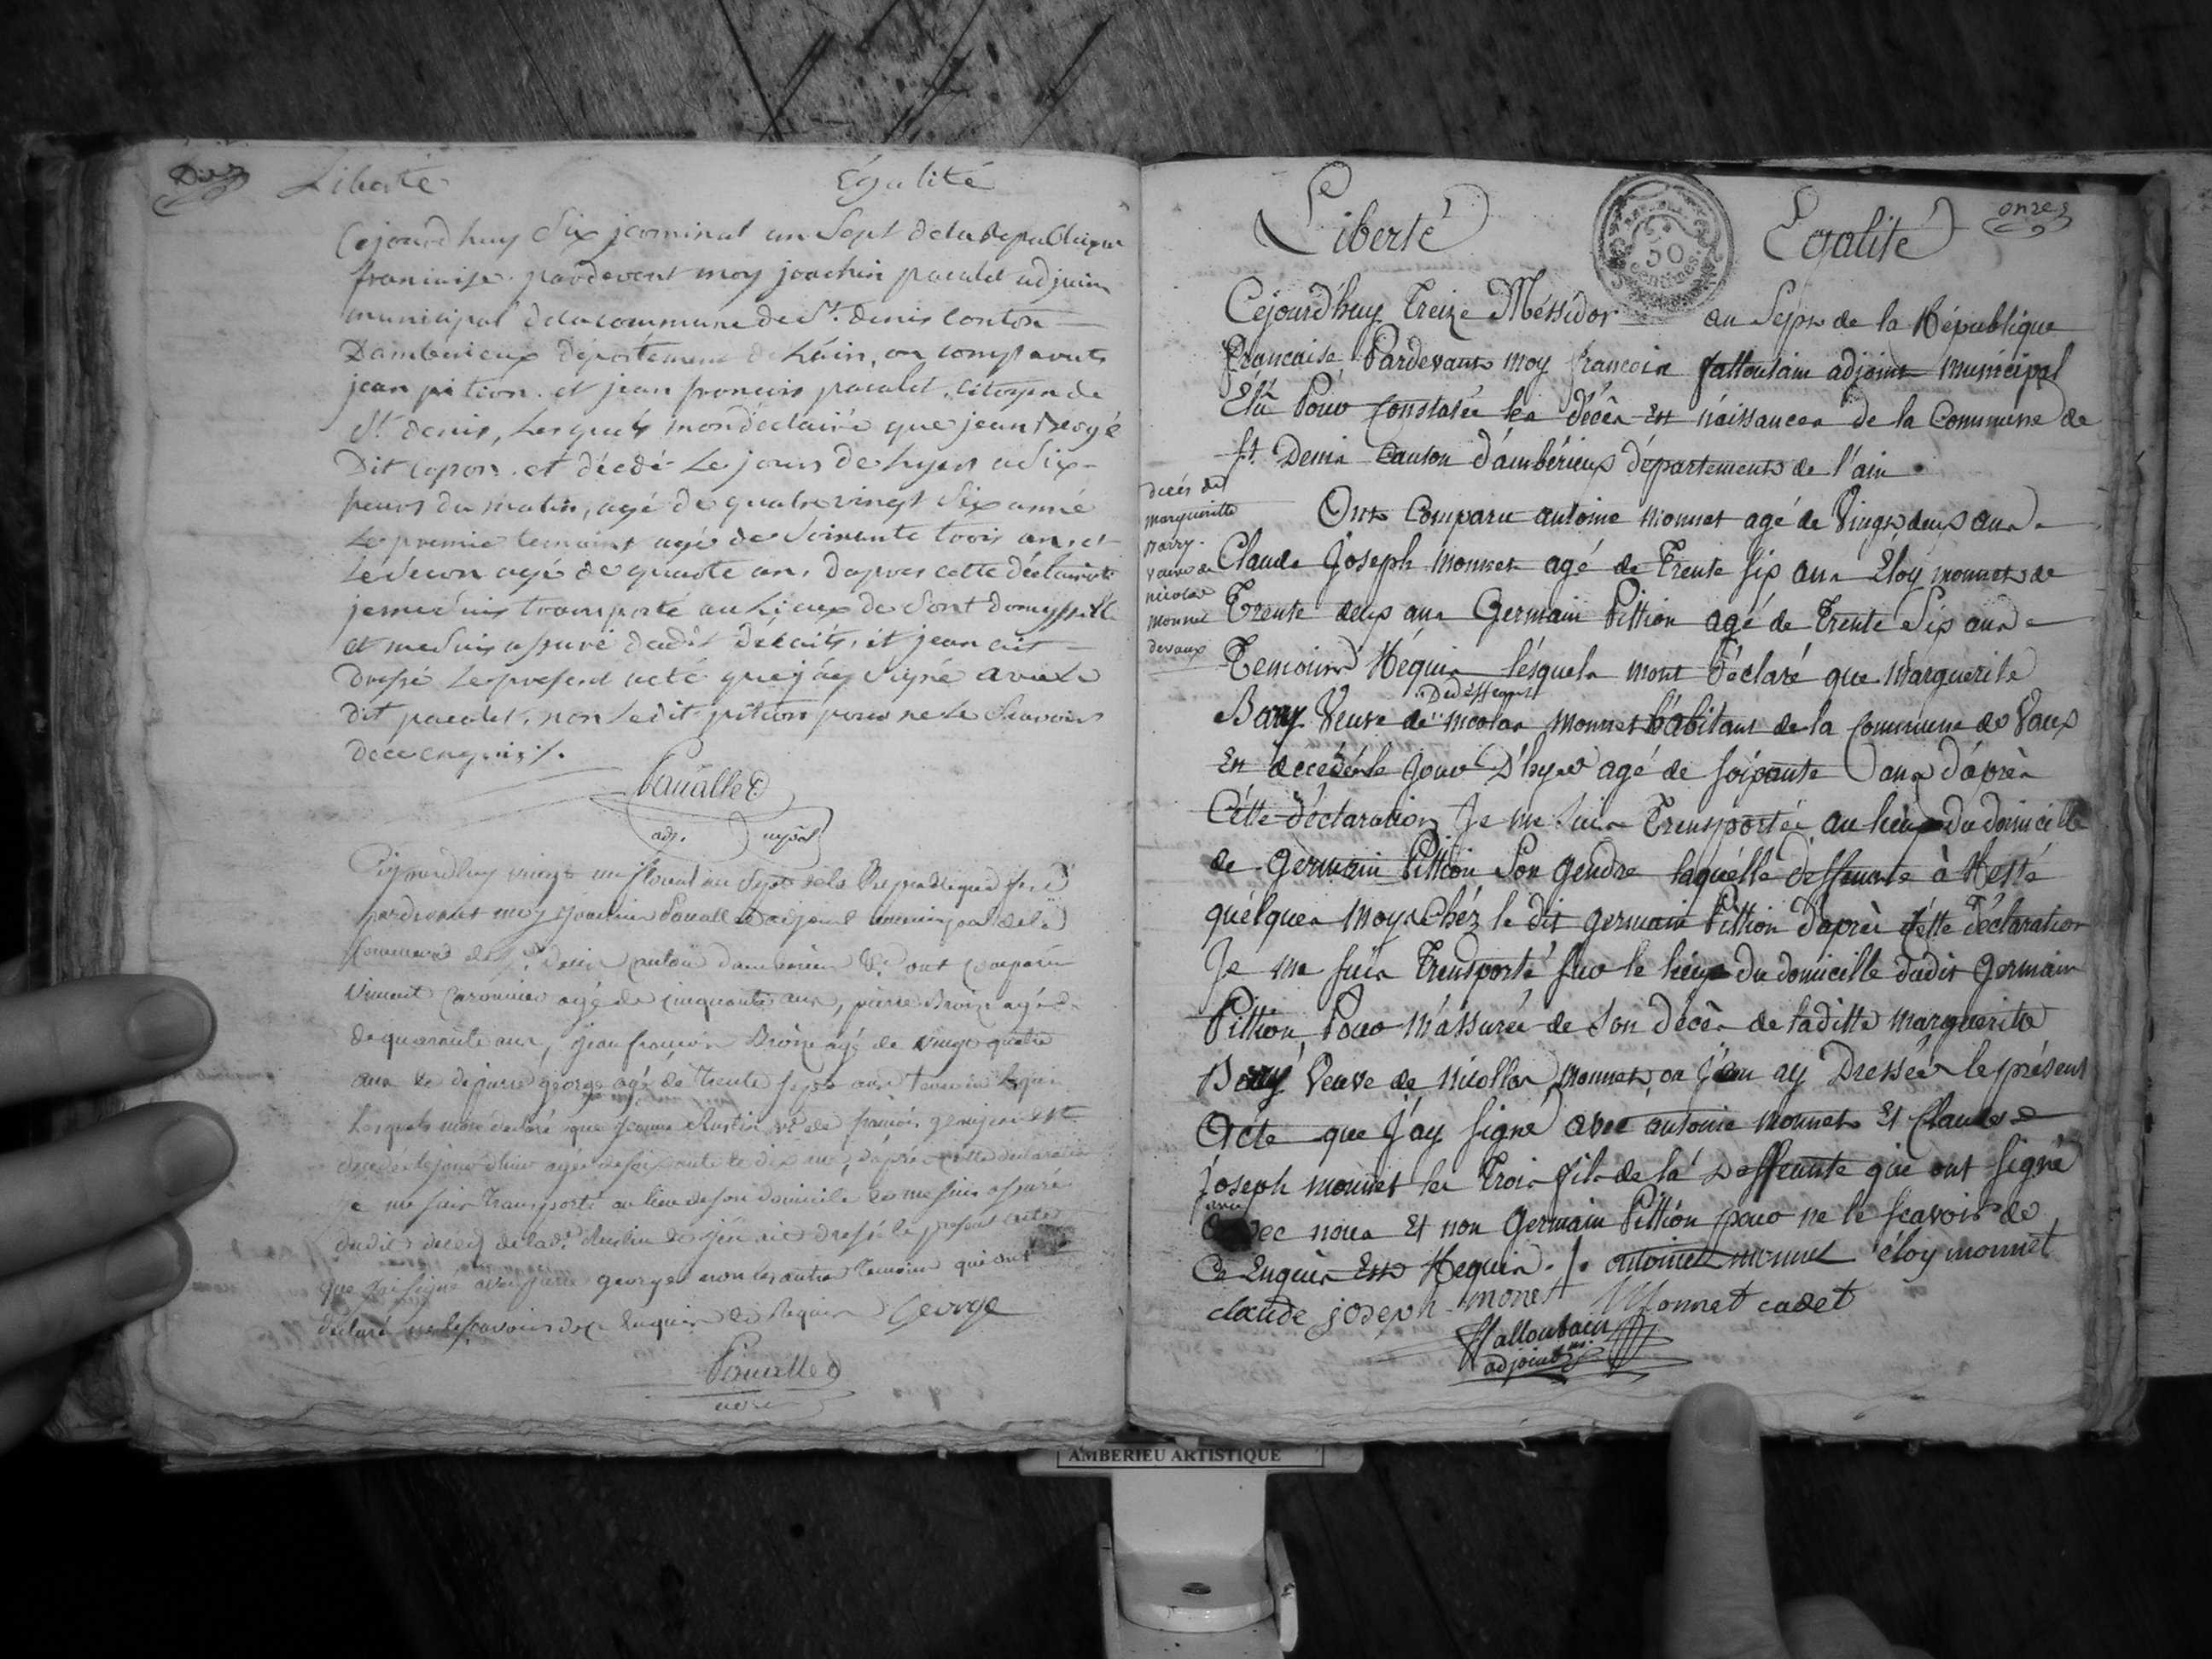 Dix
Liberté Égalité
Cejourdhuy Six jerminal an Sept dela Republique
francaise pardevent moy joachin pacalet adjuin
municipal dela commune de St. denis Conton
Dambenieux département de Lain, on comparuts
jean pition et jean francois pacalet, Citoyen de
St. denis, Lesquels mon déclairé que jean
Dit Capon et décédé Le jour de hyer a Six
heurs du matin, agé de quatre vingt Six anné
Le premie temoins agé de Soixente trois an, et
Le Secon agé de quarte an, dapres cette déclairation
jeme suis transporté au Lieux de Sont domyssille
et me suis assuré dudit décaits, et jean ait
Dressé Le presend acte que jäy Signé avec Le
dit pacalet, non Ledit pition pour ne Le Scavoir
dece enquis ./.
Pacallet
adj. mpal
Cejourdhuy vingt un floreal an Sept dela Republique
pardevant moy joachin Pacallet adjoint municipal dela
Commune de St. Denis Canton d'amberieu &c ont Comparu
Vincent agé de cinquante ans, pierre agé
de quarante ans, jean francois agé de vingt quatre
ans et de pierre george agé de trente sept ans temoin Requi
Lesquels mon declaré que jeanne ve. de francois est
decedée le jour d'hier agée de soixante et dix ans, d'après cette declaration
je me suis transporté au lieu de son domicile et me suis assuré
dudit decès de lad. et j'en ai dressé le present acte
que j'ai signé avec pierre george non les autres temoins qui ont
declaré ne le scavoir de ce Enquis et Requis George
Pacallet
adj.
onze
Liberté Egalité
50
Centimes
Cejourd'huy Treize Méssidor an Sept de la République
francaise, Pardevant moy francois falloubain adjoint municipal
Elû Pour Constatér les décès Et náissances de la Commune de
St. Denis Canton d'ambérieux départements de l'ain.
décés de
margueritte
barry
vauve de
nicolas
monnet
devaux
Onts Comparu antoine monnet agé de Vingt deux ans
Claude Joseph monnet agé de Trente six ans Eloy monnet de
Trente deux ans Germain Pittion agé de Trente Six ans
Temoins Requis lésquels mont Déclaré que marguerite
Dedéffeunt
Bary Veuve de nicolas monnet habitant de la Commune de Vaux
En décédée le Jour D'hyer agé de soixante ans d'áprès
Cétte déclaration Je me suis Trensportée au lieux du domicille
de germain Pittion Son gendre laquélle déffeunte à Résté
quélques moys chéz le dit germain Pittion d'aprés Cétte Déclaration
Je me suis Trensporté sur le lieux du domicille dudit germain
Pittion Pour m'assurée de Son décès de laditte marguerite
Barry Veuve de nicollas monnet, on J'en ay Dressée le présent
Acte que J'ay signé avec antoine monnet Et Claude
Joseph monnet les Trois fils de la Deffeunte qui ont signé
avec
avec nous Et non germain Pittion pour ne le scavoir de
Ce Enquis Et Requis ./. antoine monnet éloy monnet
claude joseph monet Monnet cadet
falloubain
adjoint
AMBERIEU ARTISTIQUE